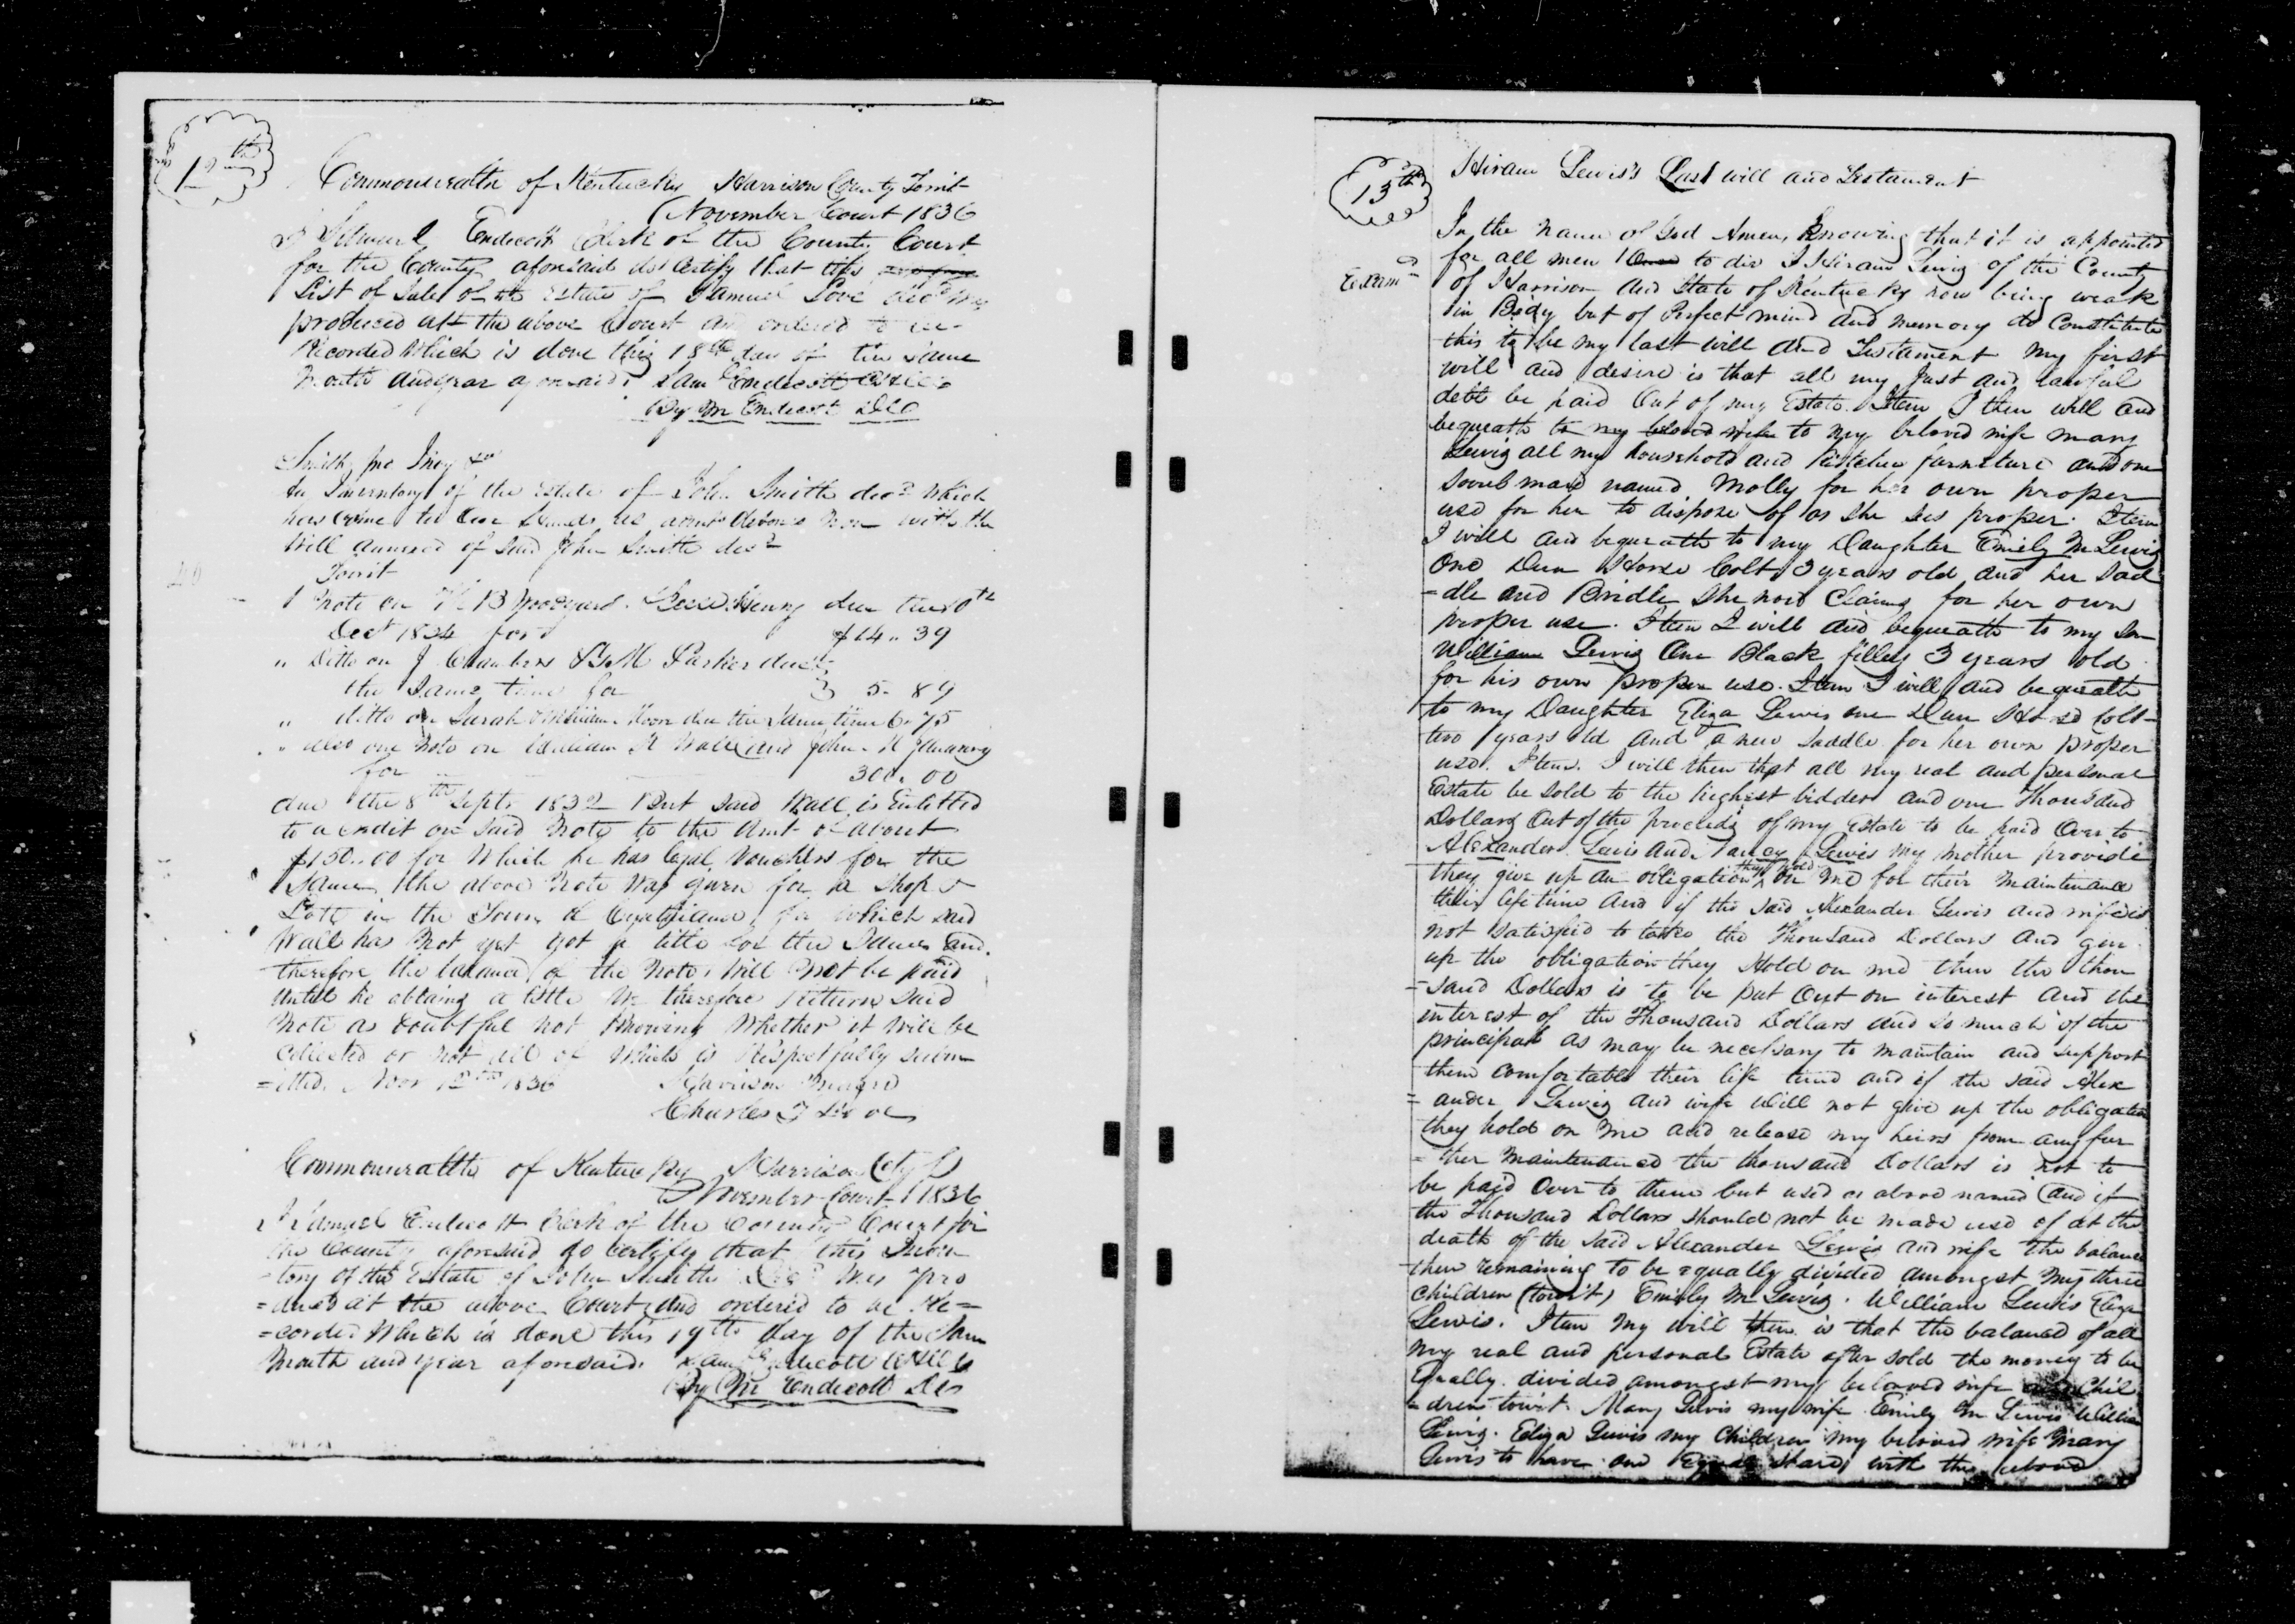 12th
Commonwealth of Kentucky Harrison County Towit
November Court 1836
I Samuel Endecott Clerk of the County Court
for the County aforesaid do Certify that this
List of Sale of the Estate of Samuel Love decd was
produced at the above Court and ordered to be
Recorded which is done this 18th day of the same
Month and year aforesaid. Sam Endecott
By M Endecott DC
Smith, Jno Invy
An Inventory of the Estate of John Smith decd which
has come to our hands as with the
Will annexed of said John Smith decd
Towit
1 Note on Henry due the
Decr 1834 for $14.. 39
" Ditto on J Chambers & Parker due
the Same time for 5. 89
" ditto on Sarah & William Moore due the Same time 6.75
" also one Note on William K Wall and John January
for 300. 00
due the 8th Septr 1832 But said Wall is Entitled
to a credit on said Note to the Amt of about
$150..00 for Which he has legal Vouchers for the
Same, the above Note was given for a Shop &
Lott in the Town of Cynthiana, for which said
Wall has Not yet got a title for the Same and
therefore the balance of the Note Will Not be paid
Until he obtains a title We therefore Return said
Note as doubtful not knowing Whether it will be
Collected or not all of Which is Respectfully subm
=itted. Novr 12th 1836 Harrison
Charles
Commonwealth of Kentucky Harrison Cty
November Court 1836
I Samuel Endecott Clerk of the County Court for
the County aforesaid do Certify that this Inven
=tory of the Estate of John Smith Decd Was pro
=duced at the above Court and ordered to be Re=
=corded Which is done this 19th day of the Same
Month and year aforesaid. Sam Endecott
By M Endecott DC
13th
Hiram Lewis's Last will and Testament
Examd
In the name of God Amen, Knowing that it is appointed
for all men Once to die I Hiram Lewis of the County
of Harrison and State of Kentucky now being weak
in Body but of Perfect mind and memory do Constitute
this to be my last will and Testament My first
will and desire is that all my Just and lawful
debts be paid Out of my Estate. Item I then will and
bequeath to my beloved wife to my beloved wife Mary
Lewis all my household and Kitchen furniture and one
Sorrel mare named Molly for her own proper
use for her to dispose of as she Sees proper. Item
I will and bequeath to my Daughter Emily M Lewis
One Dun Horse Colt 3 years old and her Sad
=dle and Bridle She now Claims for her own
proper use. Item I will and bequeath to my Son
William Lewis One Black filley 3 years old
for his own proper use. Item I will and bequeath
to my Daughter Eliza Lewis one Dun Horse Colt
two years old and a new Saddle for her own proper
use. Item. I will then that all my real and personal
Estate be sold to the highest bidder and one Thousand
Dollars Out of the proceeds of my Estate to be paid Over to
Alexander Lewis and Lewis my Mother provide
they give up an obligation they hold on me for their Maintenance
their life time and if the said Alexander Lewis and wife is
not satisfied to take the Thousand Dollars and give
up the obligation they Hold on me then the thou
=sand Dollars is to be put Out on interest and the
interest of the Thousand Dollars and so much of the
principal as may be necessary to maintain and support
them comfortable their life time and if the said Alex
=ander Lewis and wife Will not give up the obligation
they hold on me and release my heirs from any fur
=ther Maintenance the thousand Dollars is not to
be paid Over to them but used as above named and if
the Thousand Dollars should not be made use of at the
death of the Said Alexander Lewis and wife the balance
then remaining to be equally divided amongst my three
Children (towit) Emily M Lewis. William Lewis Eliza
Lewis. Item my will then is that the balance of all
my real and personal Estate after sold the money to be
Equally divided amongst my beloved wife and Chil
=dren towit. Mary Lewis my wife Emily M Lewis William
Lewis. Eliza Lewis my Children my beloved wife Mary
Lewis to have one Equal Share with the above